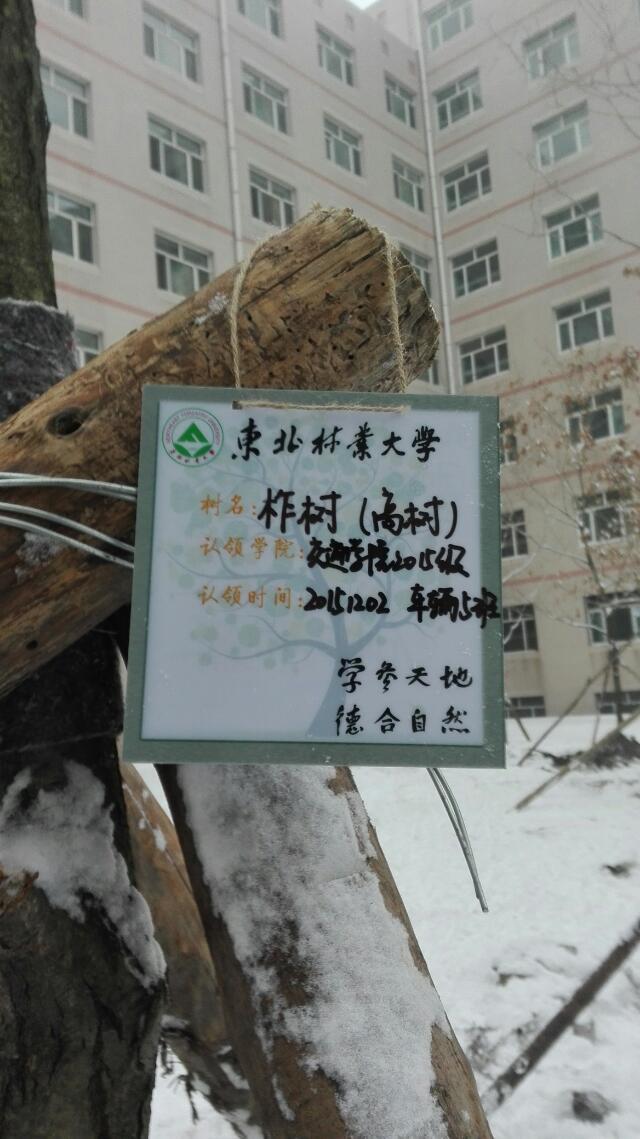 東北林業大學
树名:柞树(高树)
认领学院:交通学院2015级
认领时间:20151202 车辆5班
学参天地
德合自然